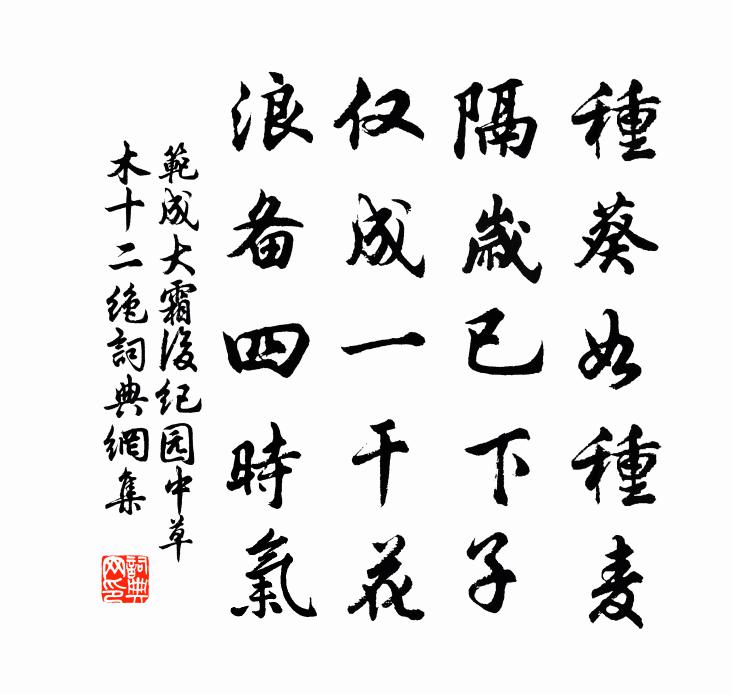 種葵如種麦
隔歳已下子
仅成一干花
浪备四時氣
範成大霜後纪园中草
木十二绝詞典網集
詞典
网印